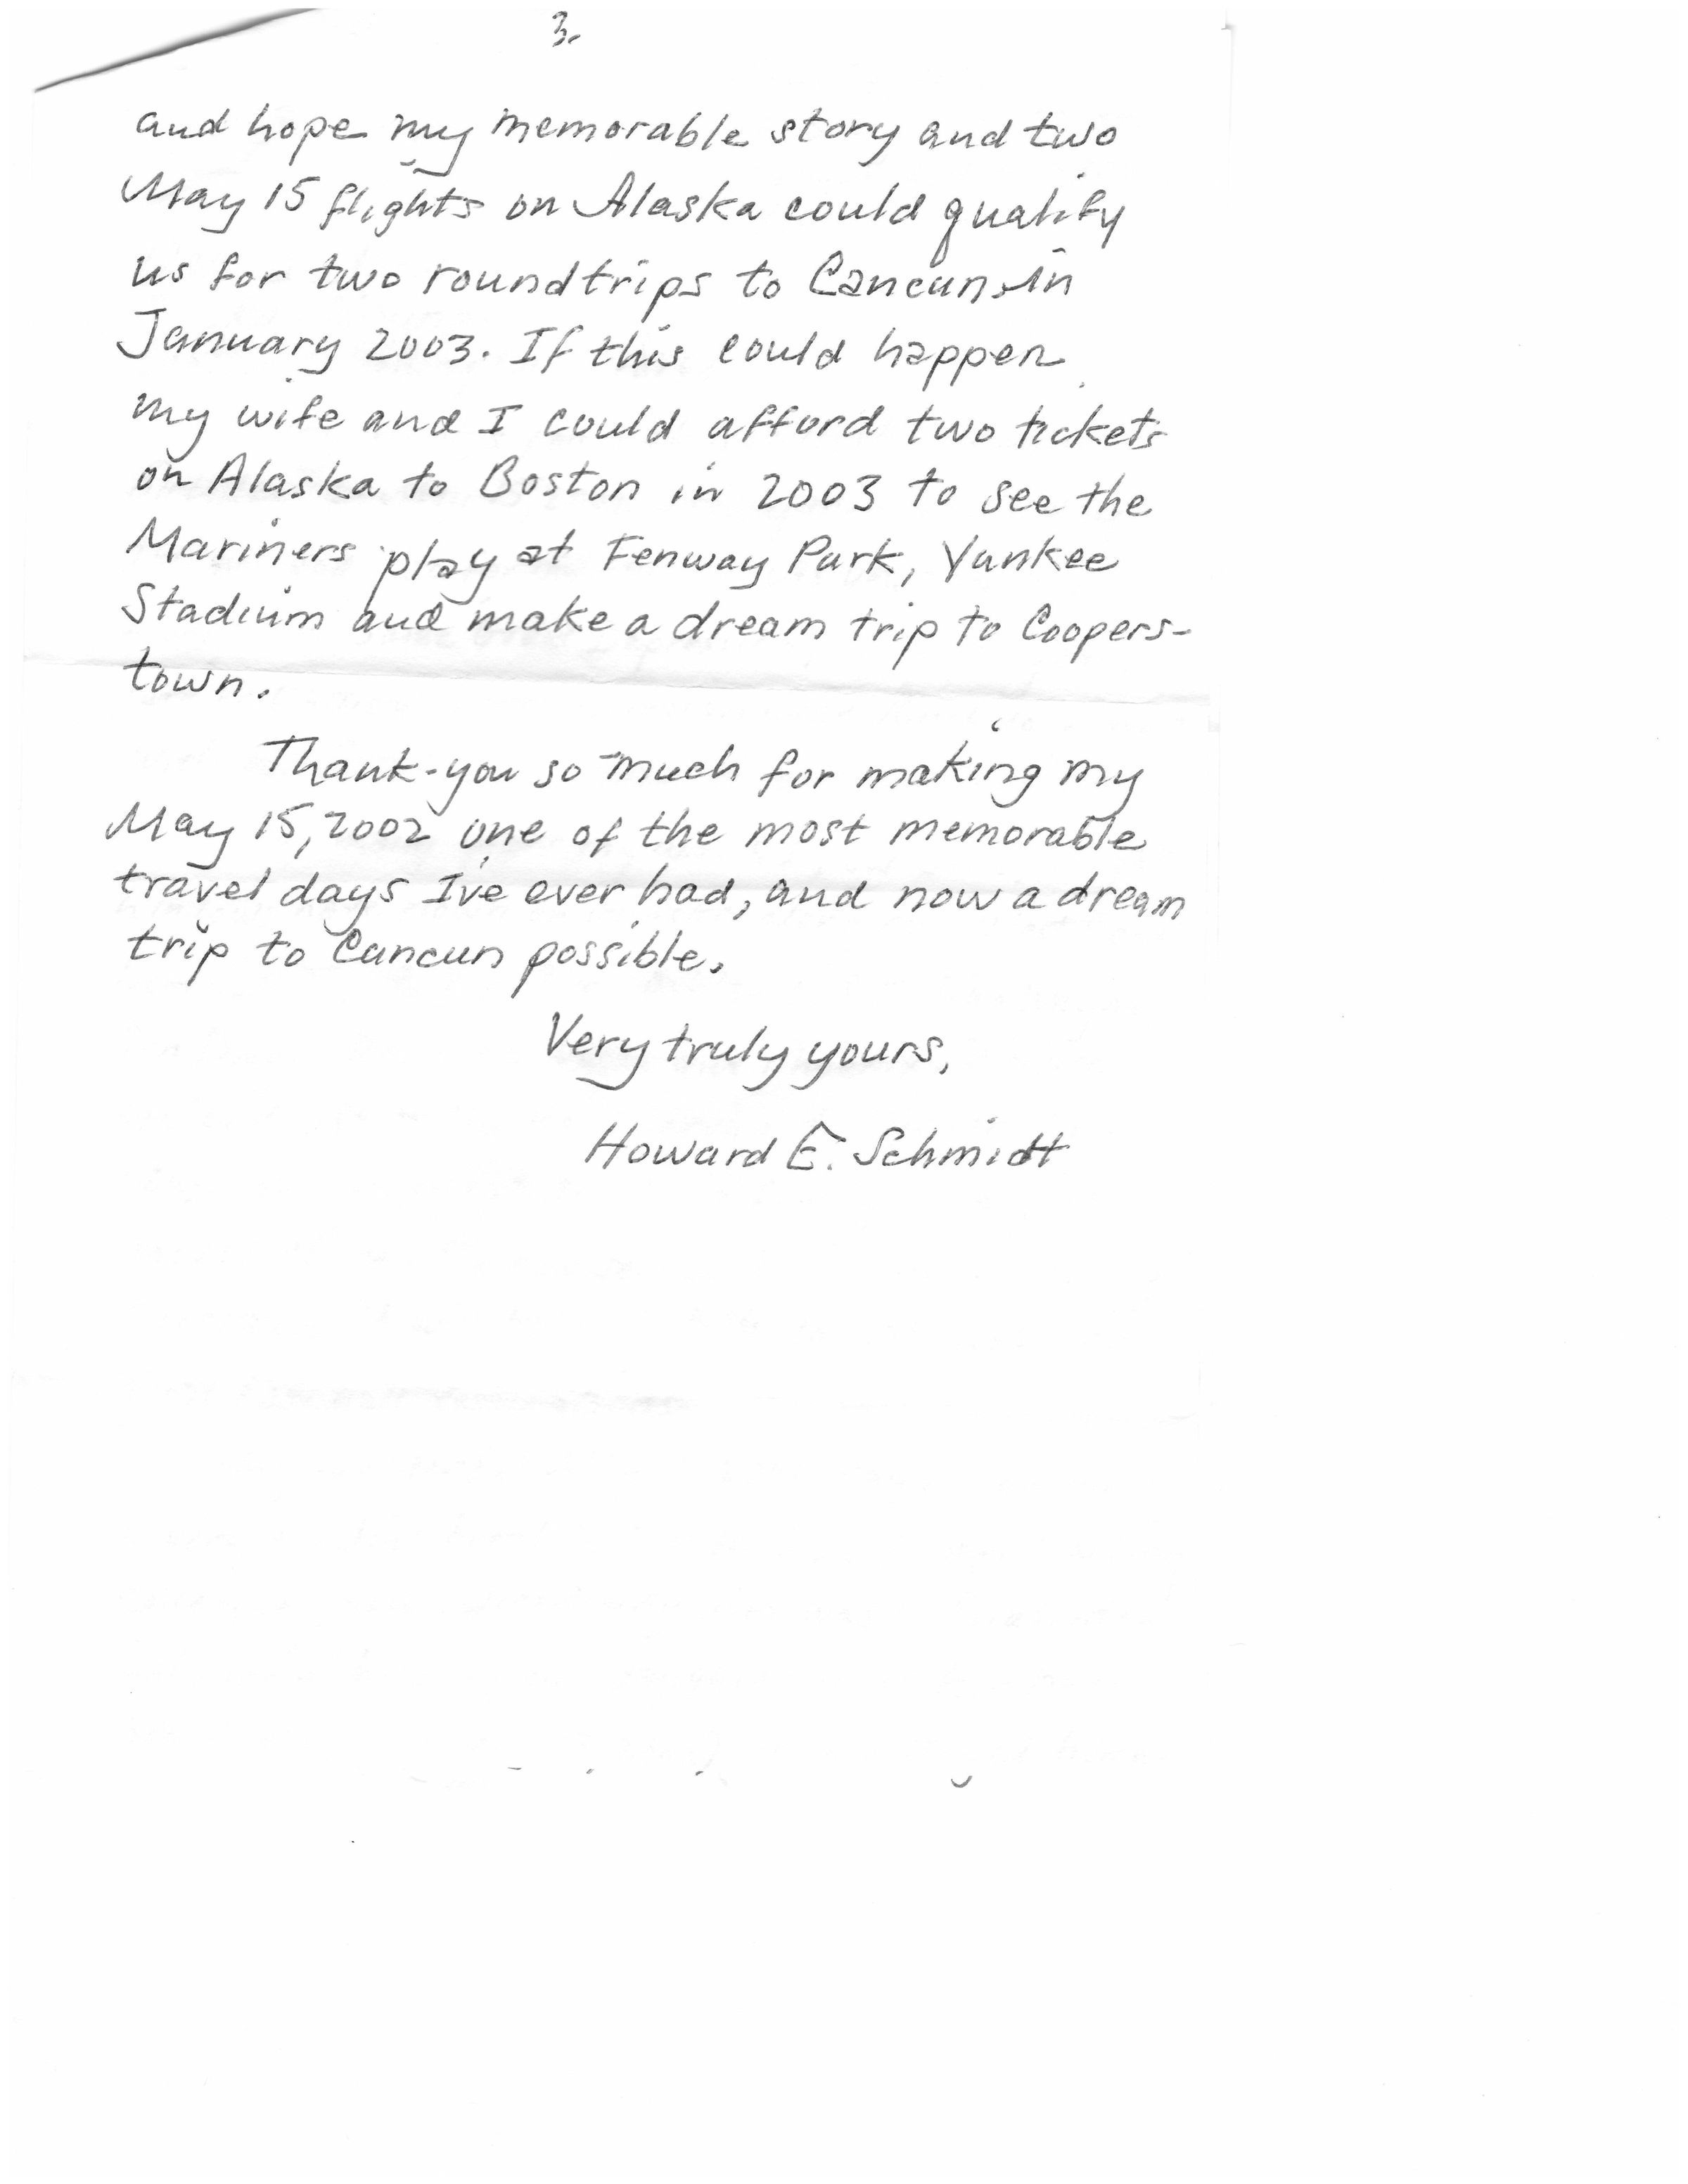 3.
and hope my memorable story and two
May 15 flights on Alaska could qualify
us for two roundtrips to Cancun in
January 2003. If this could happen
my wife and I could afford two tickets
on Alaska to Boston in 2003 to see the
Mariners play at Fenway Park, Yankee
Stadium and make a dream trip to Coopers-
town.
Thank-you so much for making my
May 15, 2002 one of the most memorable
travel days I've ever had, and now a dream
trip to Cancun possible.
Very truly yours,
Howard E. Schmidt